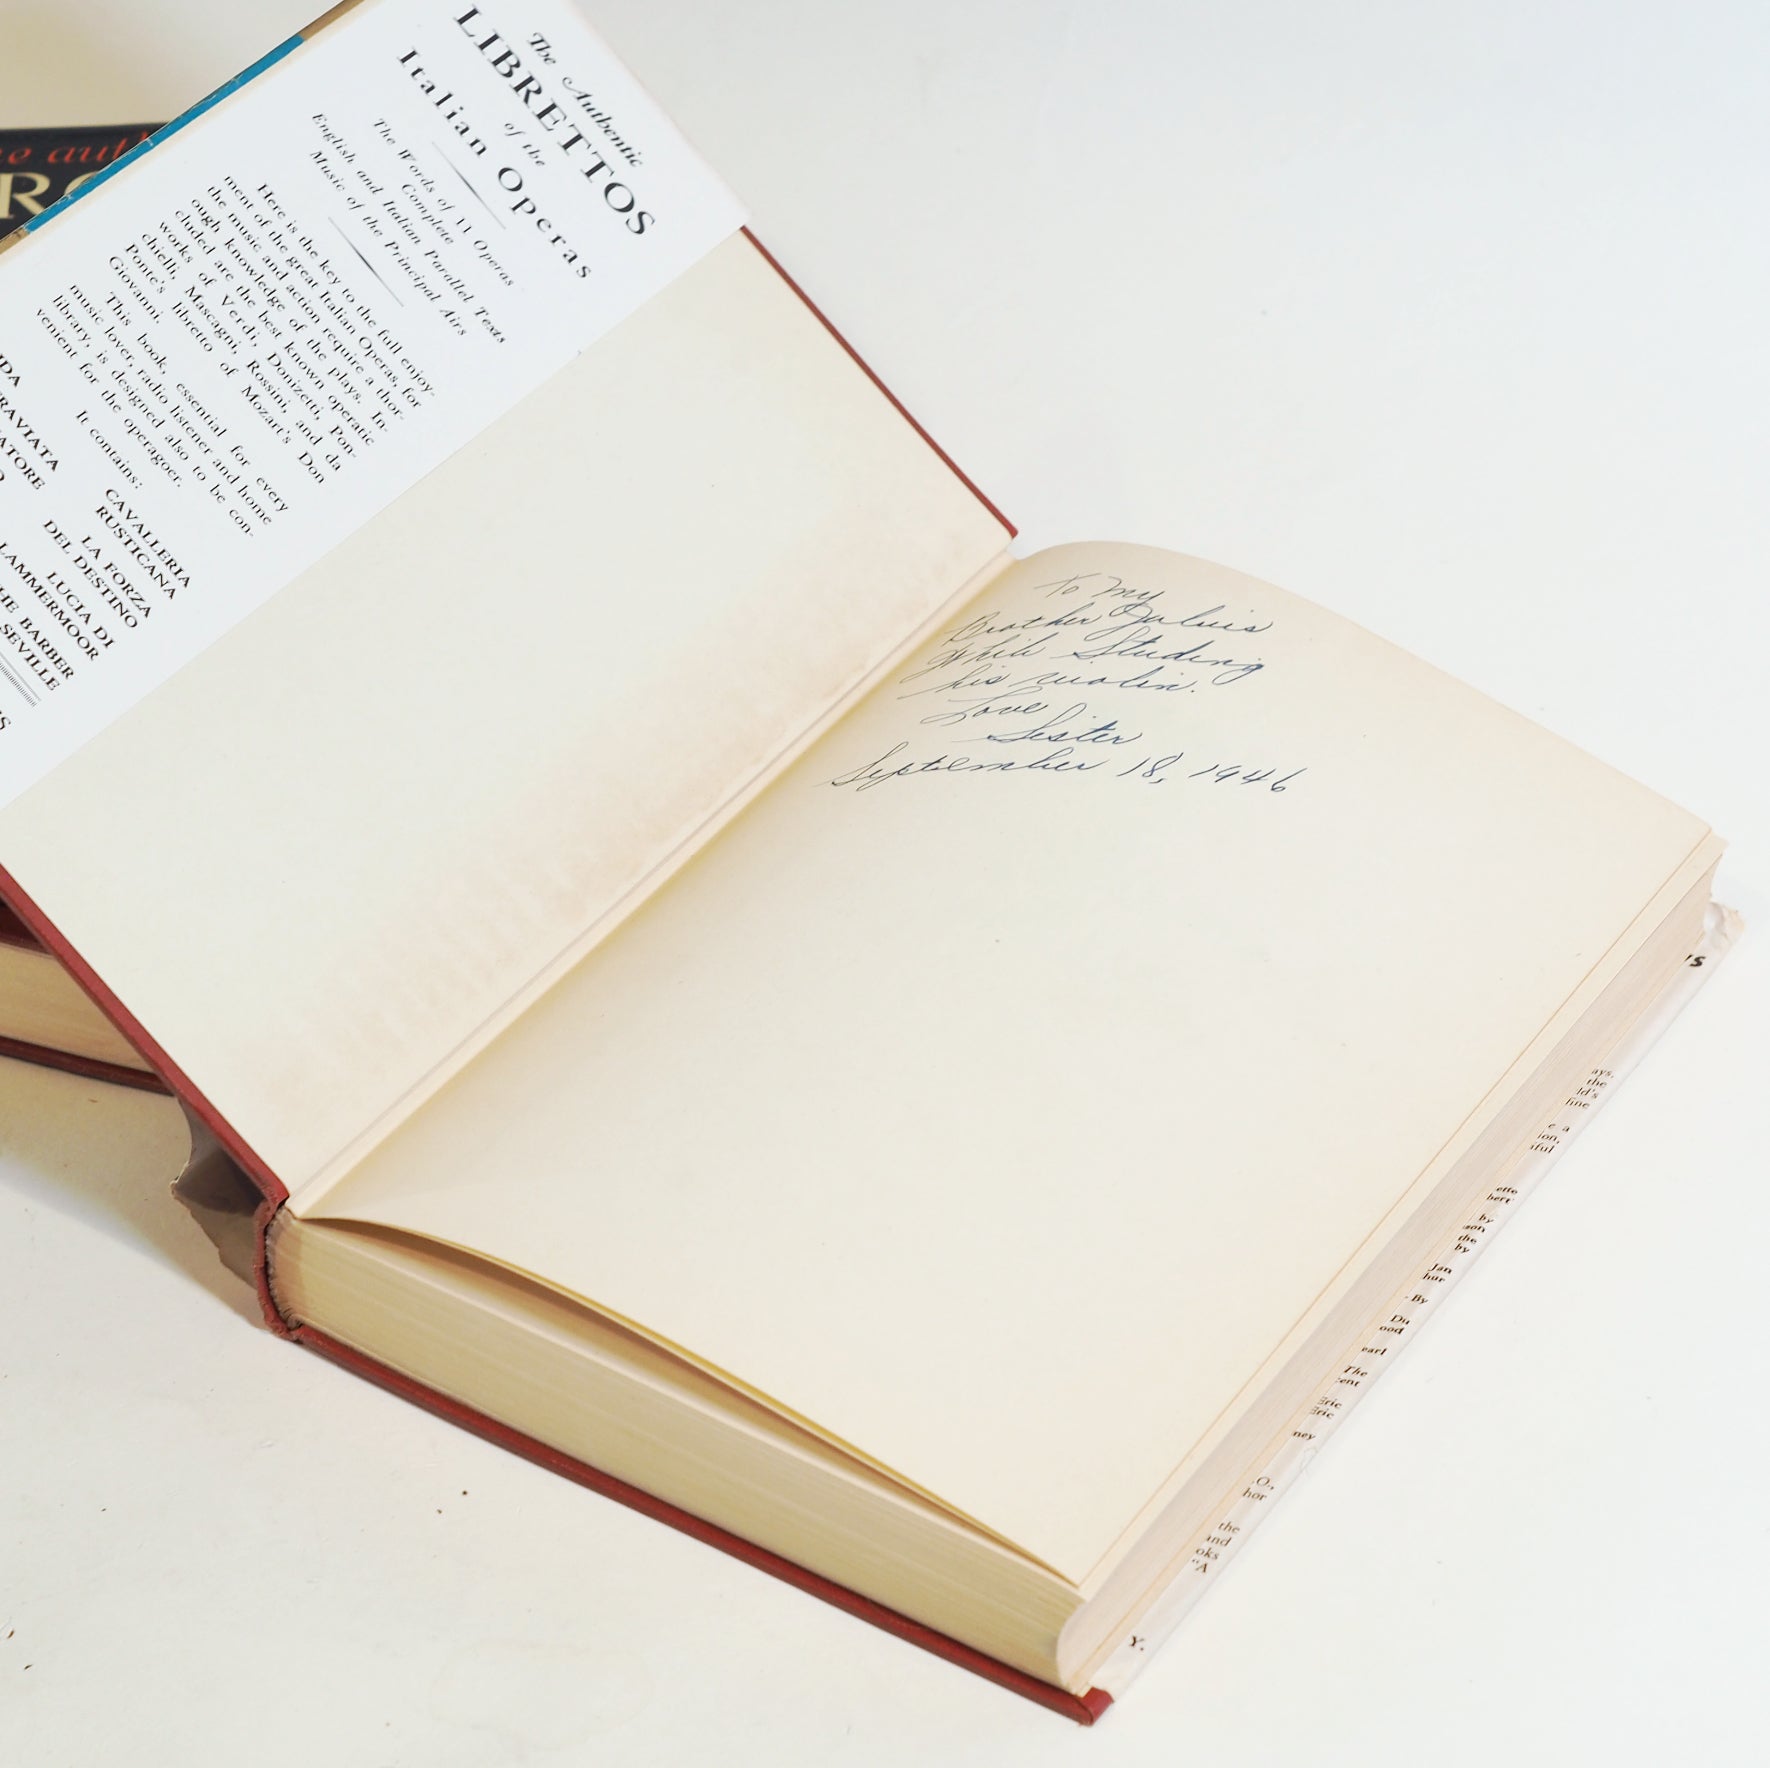 The Authentic
LIBRETTOS
of the
Italian Operas
The Words of 11 Operas
Complete
English and Italian Parallel Texts
Music of the Principal Airs
Here is the key to the full enjoy-
ment of the great Italian Operas, for
the music and action require a thor-
ough knowledge of the plays. In-
cluded are the best known operatic
works of Verdi, Donizetti, Pon-
chielli, Mascagni, Rossini, and da
Ponte's libretto of Mozart's Don
Giovanni.
This book, essential for every
music lover, radio listener and home
library, is designed also to be con-
venient for the operagoer.
It contains:
CAVALLERIA
RUSTICANA
LA FORZA
DEL DESTINO
LUCIA DI
LAMMERMOOR
THE BARBER
SEVILLE
To My
Brother
While Studing
his violin.
Love
Sister
September 18, 1946
ays.
the
ld's
fine
e a
ion,
iful
ette
bert
by
son
the
by
Jan
hur
- By
Du
ood
earl
The
cent
Eric
Eric
ney
.O.,
hor
the
and
oks
"A
Y.